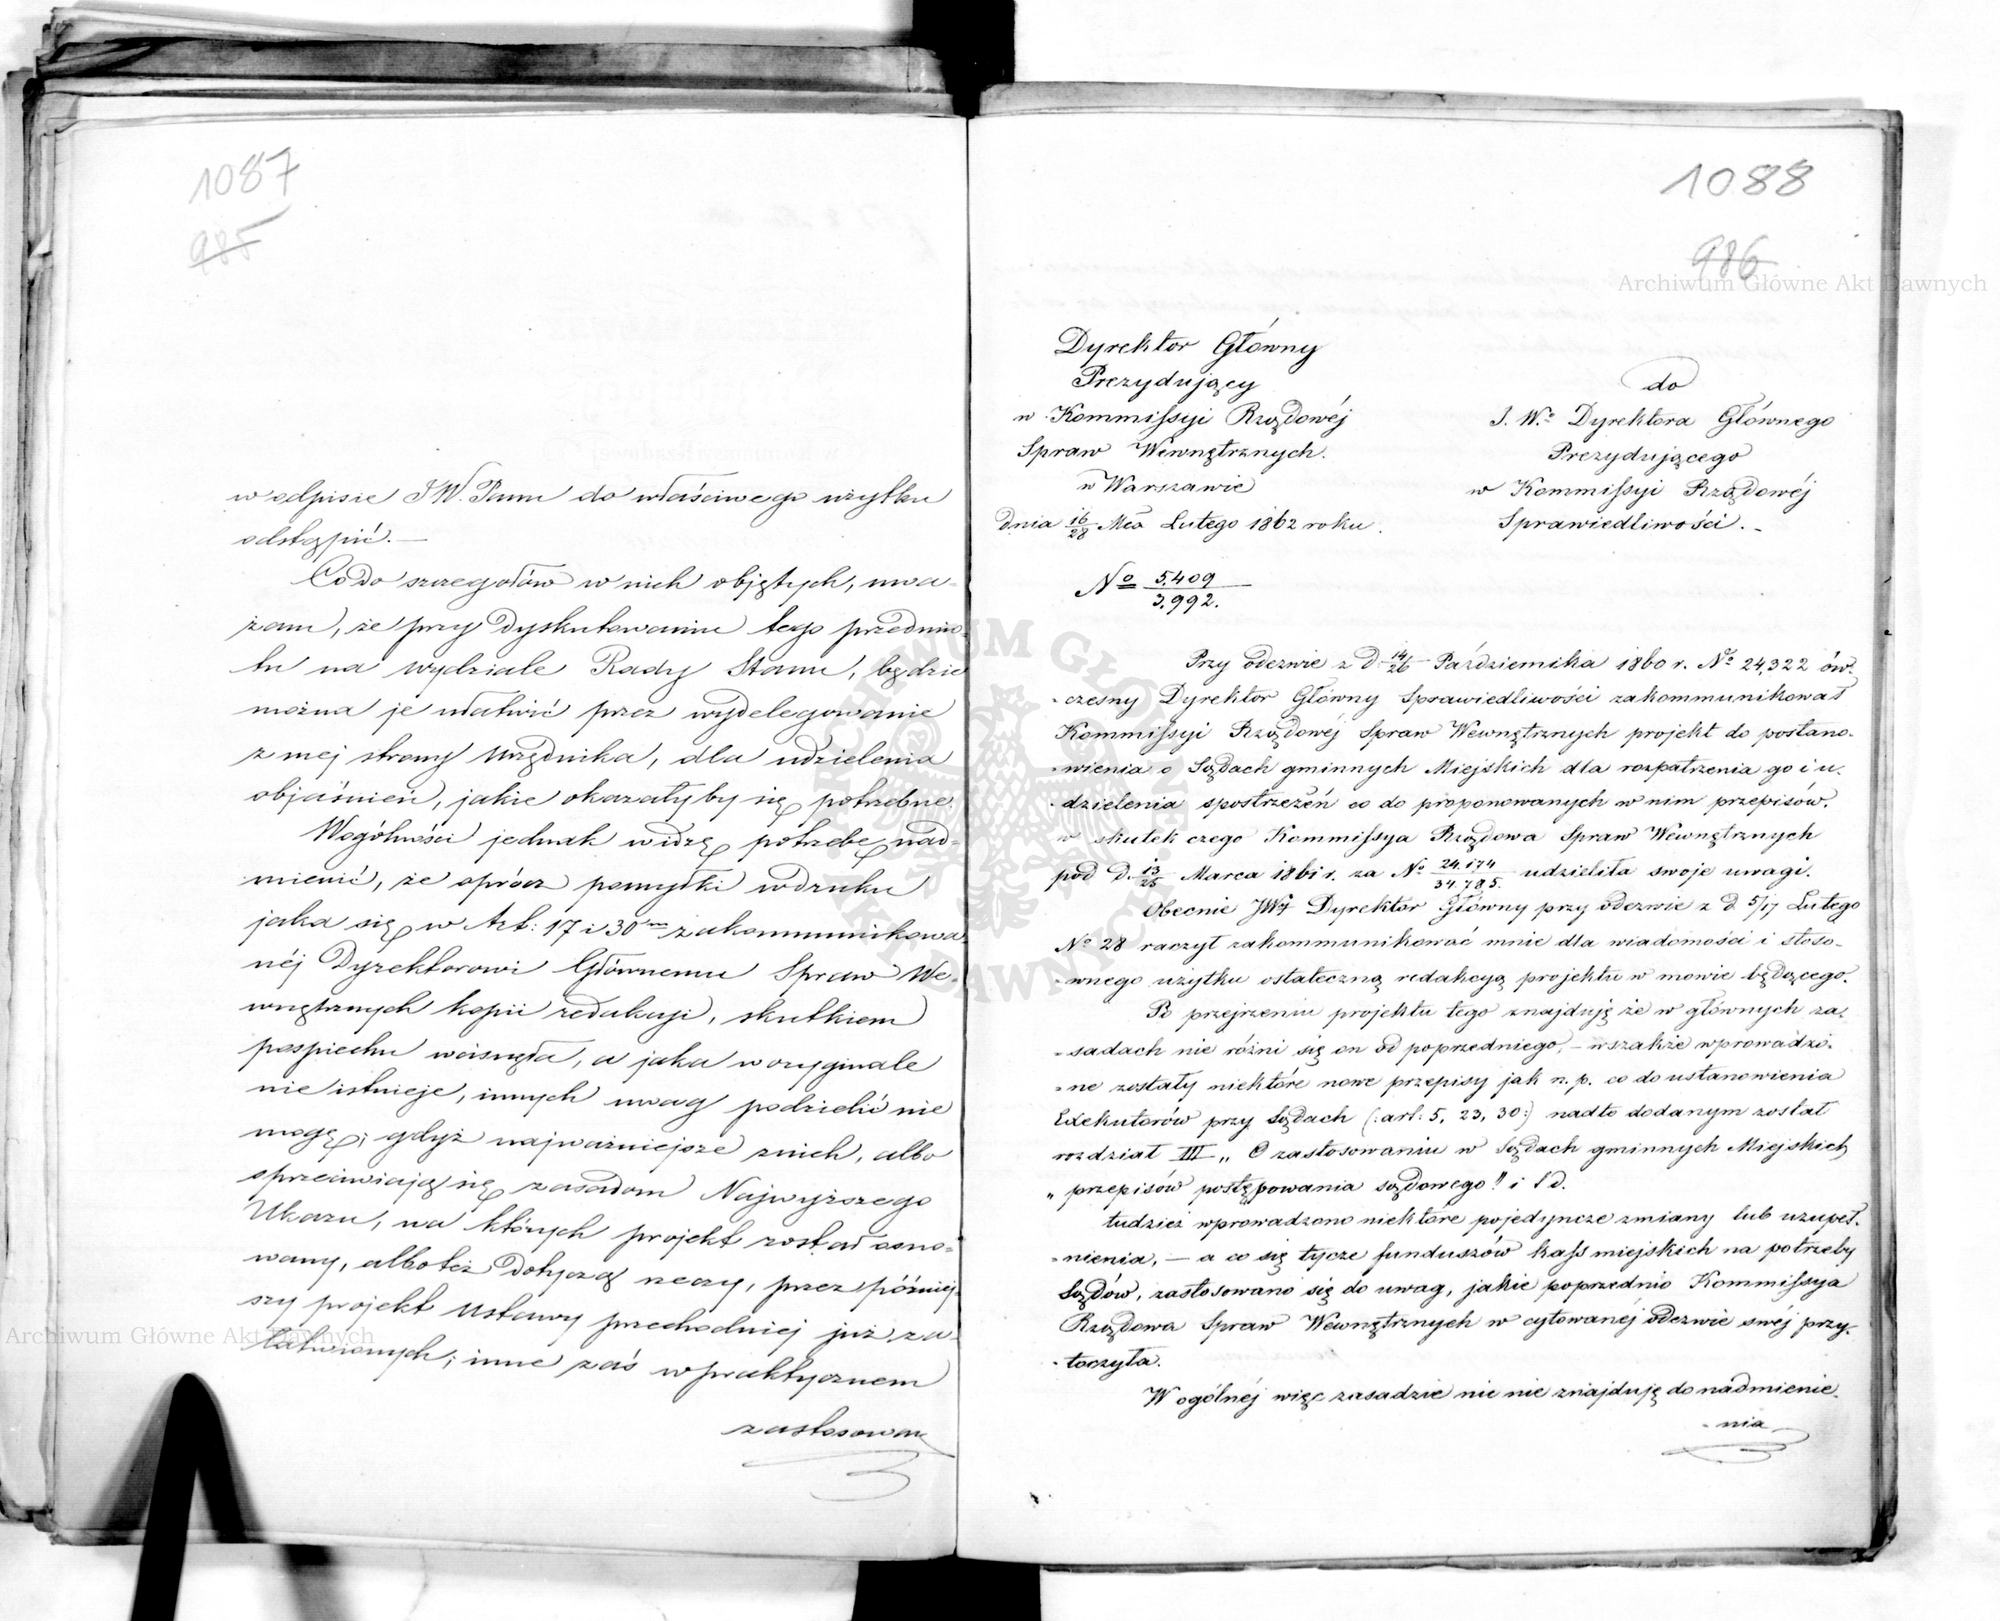 1087
985
w odpisie JW. Panu do właściwego użytku
odstąpić. —
Co do szczegółów w nich objętych, uwa-
żam, że przy dyskutowaniu tego przedmio-
tu na wydziale Rady Stanu, będzie
można je ułatwić przez wydelegowanie
z mej strony urzędnika, dla udzielenia
objaśnień, jakie okazałyby się potrzebne.
Wogólności jednak widzę potrzebę nad-
mienić, że oprócz pomyłki w druku
jaka się w Art: 17 i 30 zakommunikowa-
néj Dyrektorowi Głównemu Spraw We-
wnętrznych kopii redakcyi, skutkiem
pospiechu wcisnęła, a jaka w oryginale
nie istnieje, innych uwag podzielić nie
mogę; gdyż najważniejsze z nich, albo
sprzeciwiają się zasadom Najwyższego
Ukazu, na których projekt został osno-
wany, albo też dotyczą rzeczy, przez później-
szy projekt Ustawy przechodniej już za-
łatwionych; inne zaś w praktycznem
zastosowan
1088
986
Archiwum Główne Akt Dawnych
Dyrektor Główny
Prezydujący
w Kommissyi Rządowéj
Spraw Wewnętrznych.
w Warszawie
dnia 16/28 Mca Lutego 1862 roku.
No 5.409/3.992.
do
J. W.o Dyrektora Głównego
Prezydującego
w Kommissyi Rządowéj
Sprawiedliwości. -
Przy odezwie z d. 14/26 Października 1860 r. No 24,322 ów-
-czesny Dyrektor Główny Sprawiedliwości zakommunikował
Kommissyi Rządowéj Spraw Wewnętrznych projekt do postano-
-wienia o Sądach gminnych Miejskich dla rozpatrzenia go i u-
-dzielenia spostrzeżeń co do proponowanych w nim przepisów.
w skutek czego Kommissya Rządowa Spraw Wewnętrznych
pod d. 13/25 Marca 1861 r. za No 24.174/34.785. udzieliła swoje uwagi.
Obecnie JW. Dyrektor Główny przy odezwie z d. 5/17 Lutego
No 28 raczył zakommunikować mnie dla wiadomości i stoso-
-wnego użytku ostateczną redakcyą projektu w mowie będącego.
Po przejrzeniu projektu tego znajduję że w głównych za-
-sadach nie różni się on od poprzedniego, — wszakże wprowadzo-
-ne zostały niektóre nowe przepisy jak n. p. co do ustanowienia
Exekutorów przy Sądach (: art: 5, 23, 30:) nadto dodanym został
rozdział III „ O zastosowaniu w Sądach gminnych Miejskich
„ przepisów postępowania sądowego" i t d.
tudzież wprowadzono niektóre pojedyncze zmiany lub uzupeł-
-nienia, — a co się tycze funduszów kass miejskich na potrzeby
Sądów, zastosowano się do uwag, jakie poprzednio Kommissya
Rządowa Spraw Wewnętrznych w cytowanéj odezwie swéj przy-
-toczyła.
W ogólnéj więc zasadzie nic nie znajduję do nadmienie-
-nia
Archiwum Główne Akt Dawnych
ARCHIWUM GŁÓWNE AKT DAWNYCH